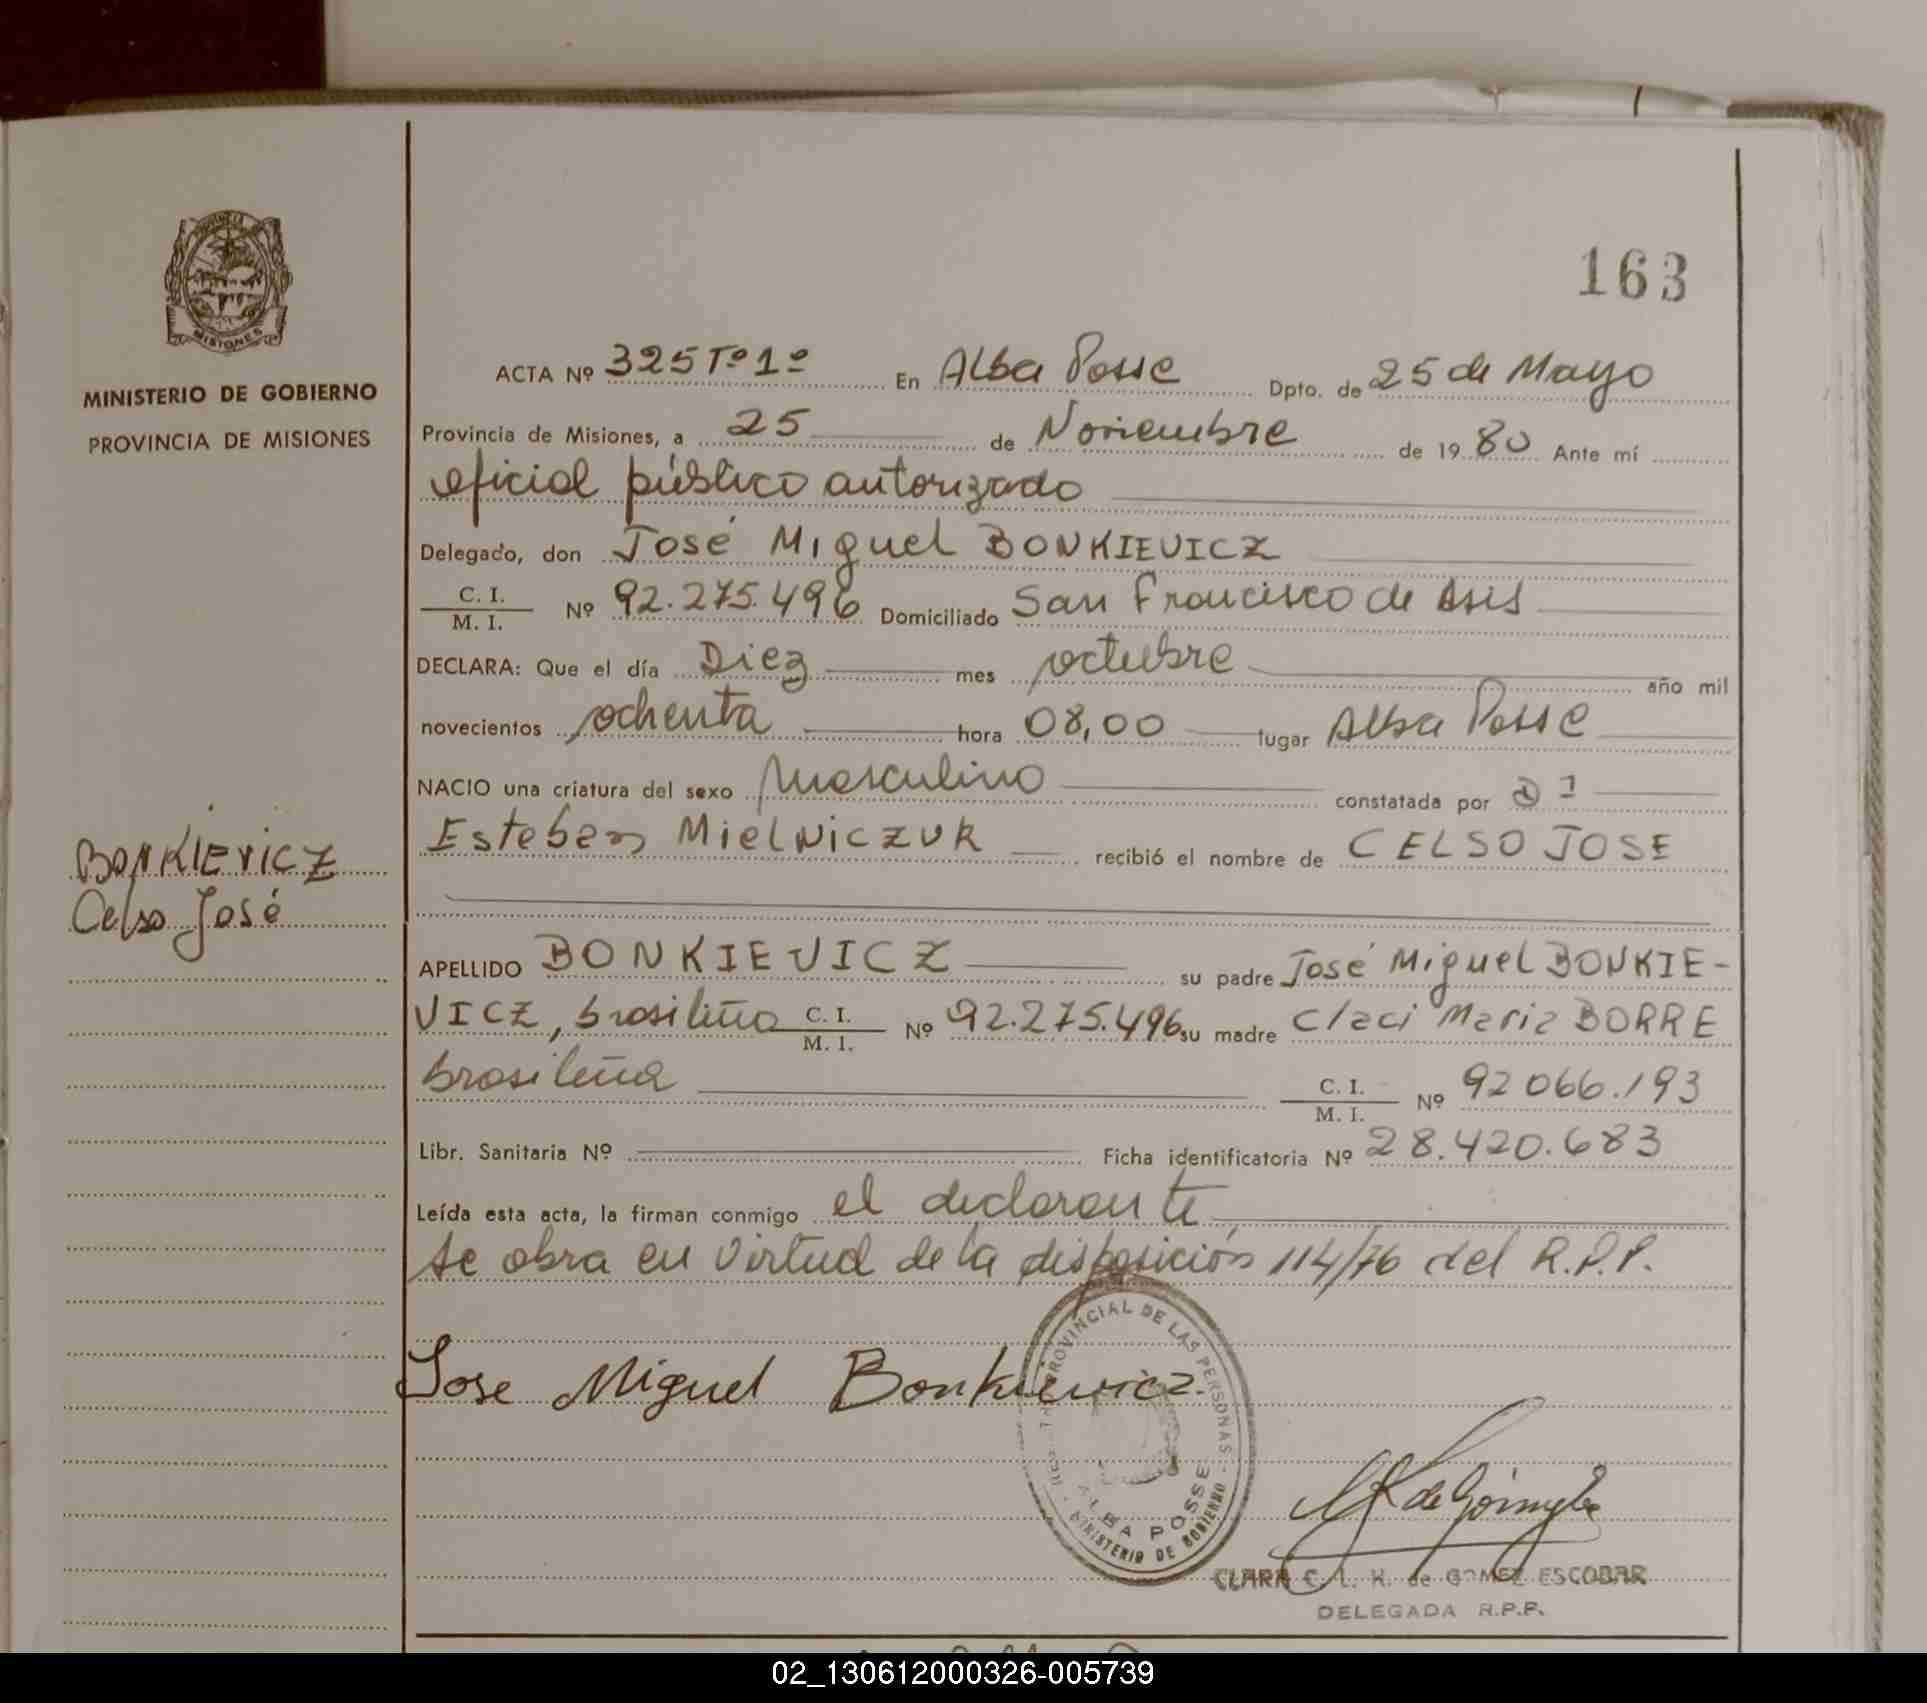 163
PROVINCIA DE
MISIONES
MINISTERIO DE GOBIERNO
PROVINCIA DE MISIONES
BONKIEVICZ
Celso José
ACTA Nº 325 Tº 1º En Alba Posse Dpto. de 25 de Mayo
Provincia de Misiones, a 25 de Noviembre de 1980 Ante mí
oficial público autorizado
Delegado, don José Miguel BONKIEVICZ
C. I.
M. I. Nº 92.275.496 Domiciliado San Francisco de Asis
DECLARA: Que el día Diez mes octubre año mil
novecientos ochenta hora 08,00 lugar Alba Posse
NACIO una criatura del sexo Masculino constatada por
Esteban MielNiczuk recibió el nombre de CELSO JOSE
APELLIDO BONKIEVICZ su padre José Miguel BONKIE-
VICZ, brasileño C. I. M. I. Nº 92.275.496 su madre Claci Maria BORRE
brasileña C. I. M. I. Nº 92 066.193
Libr. Sanitaria Nº Ficha identificatoria Nº 28.420.683
Leída esta acta, la firman conmigo el declarante
se obra en virtud de la disposición 114/76 del R.P.P.
Jose Miguel Bonkievicz.
PROVINCIAL DE LAS PERSONAS
ALBA POSSE
MINISTERIO DE GOBIERNO
CLARA C. L. K. de GOMEZ ESCOBAR
DELEGADA R.P.P.
02_130612000326-005739